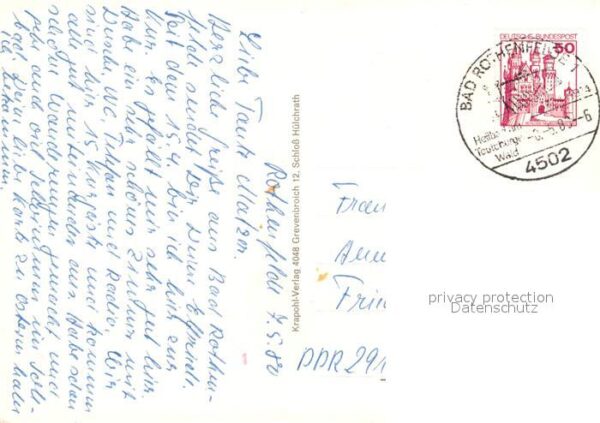 Rothenfelde 7.5.80
Liebe Tante Matzon.
Herzliche Grüße aus Bad Rothen-
felde sendet Dir Deine Elfriede.
Seit dem 15.4. bin ich hier zur
Kur. Es gefällt mir sehr gut hier.
Habe ein sehr schönes Zimmer mit
Dusche, WC, Telefon und Radio. Wir
sind hier 15 Kurgäste und kommen
alle gut miteinander aus. Habe schon
schöne Wanderungen gemacht und
gehe auch oft
bad. Deine liebe Karte zu Ostern habe
ich bekommen.
Krapohl-Verlag 4048 Grevenbroich 12, Schloß Hülchrath
DEUTSCHE BUNDESPOST
50
BAD ROTHENFELDE 1
Heilbad
Teutoburger
Wald
4502
Frau
DDR 291
privacy protection
Datenschutz